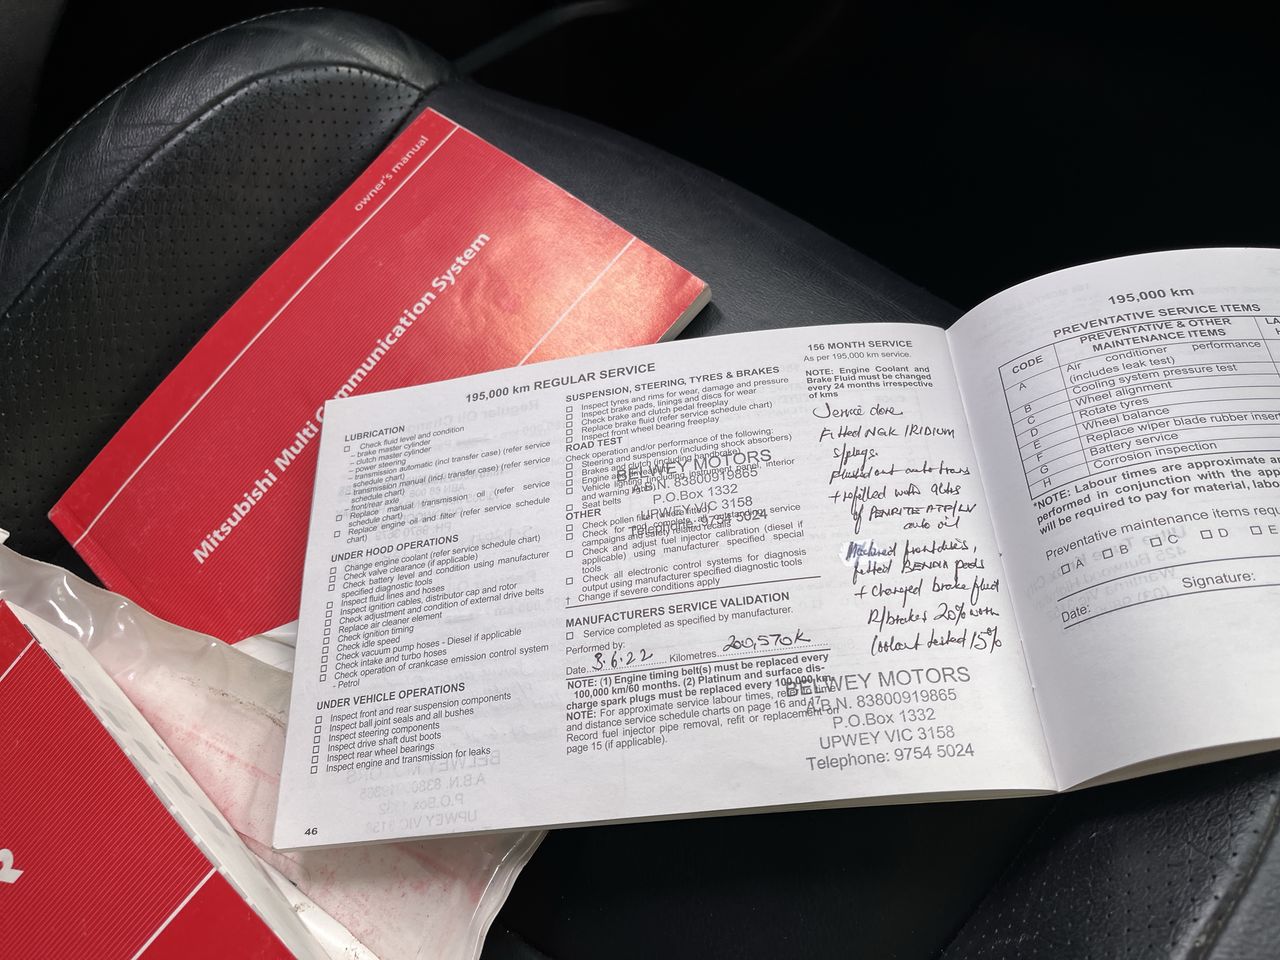 owner's manual
Mitsubishi Multi Communication System
195,000 km REGULAR SERVICE
LUBRICATION
Check fluid level and condition
- brake master cylinder
- clutch master cylinder
- power steering
- transmission automatic (incl transfer case) (refer service
schedule chart)
- transmission manual (incl. transfer case) (refer service
schedule chart)
- front/rear axle
Replace manual transmission oil (refer service
schedule chart)
Replace engine oil and filter (refer service schedule
chart)
UNDER HOOD OPERATIONS
Change engine coolant (refer service schedule chart)
Check valve clearance (if applicable)
Check battery level and condition using manufacturer
specified diagnostic tools
Inspect fluid lines and hoses
Inspect ignition cables, distributor cap and rotor
Check adjustment and condition of external drive belts
Replace air cleaner element
Check ignition timing
Check idle speed
Check vacuum pump hoses - Diesel if applicable
Check intake and turbo hoses
Check operation of crankcase emission control system
- Petrol
UNDER VEHICLE OPERATIONS
Inspect front and rear suspension components
Inspect ball joint seals and all bushes
Inspect steering components
Inspect drive shaft dust boots
Inspect rear wheel bearings
Inspect engine and transmission for leaks
46
SUSPENSION, STEERING, TYRES & BRAKES
Inspect tyres and rims for wear, damage and pressure
Inspect brake pads, linings and discs for wear
Check brake and clutch pedal freeplay
Replace brake fluid (refer service schedule chart)
Inspect front wheel bearing freeplay
ROAD TEST
Check operation/performance of the following:
Steering and suspension (including shock absorbers)
Brakes and clutch (including handbrake)
Engine and
Vehicle lighting (including instrument panel, interior
and warning
Seat belts
OTHER
Check pollen filter
Check for and complete all outstanding service
campaigns and safety related recalls
Check and adjust fuel injector calibration (diesel if
applicable) using manufacturer specified special
tools
Check all electronic control systems for diagnosis
output using manufacturer specified diagnostic tools
† Change if severe conditions apply
BELWEY MOTORS
A.B.N. 83800919865
P.O.Box 1332
UPWEY VIC 3158
Telephone: 9754 5024
MANUFACTURERS SERVICE VALIDATION
Service completed as specified by manufacturer.
Performed by:
Date 3.6.22 Kilometres 200,570K
NOTE: (1) Engine timing belt(s) must be replaced every
100,000 km/60 months. (2) Platinum and surface dis-
charge spark plugs must be replaced every 100,000 km.
NOTE: For approximate service labour times, refer to time
and distance service schedule charts on page 16 and 17.
Record fuel injector pipe removal, refit or replacement on
page 15 (if applicable).
156 MONTH SERVICE
As per 195,000 km service.
NOTE: Engine Coolant and
Brake Fluid must be changed
every 24 months irrespective
of kms
Service done
Fitted NGK IRIDIUM
s/plugs.
flushed out auto trans
+ refilled with 9Ltrs
of PENRITE ATF/LV
auto oil
Machined front discs,
fitted BENDIX pads
+ changed brake fluid
R/brakes 20% worn
Coolant tested 15%
BELWEY MOTORS
A.B.N. 83800919865
P.O.Box 1332
UPWEY VIC 3158
Telephone: 9754 5024
195,000 km
PREVENTATIVE SERVICE ITEMS
CODE PREVENTATIVE & OTHER MAINTENANCE ITEMS LA
A Air conditioner performance (includes leak test)
B Cooling system pressure test
C Wheel alignment
D Rotate tyres
E Wheel balance
F Replace wiper blade rubber inser
G Battery service
H Corrosion inspection
*NOTE: Labour times are approximate an
performed in conjunction with the app
will be required to pay for material, labo
Preventative maintenance items requ
A B C D E
Signature:
Date: